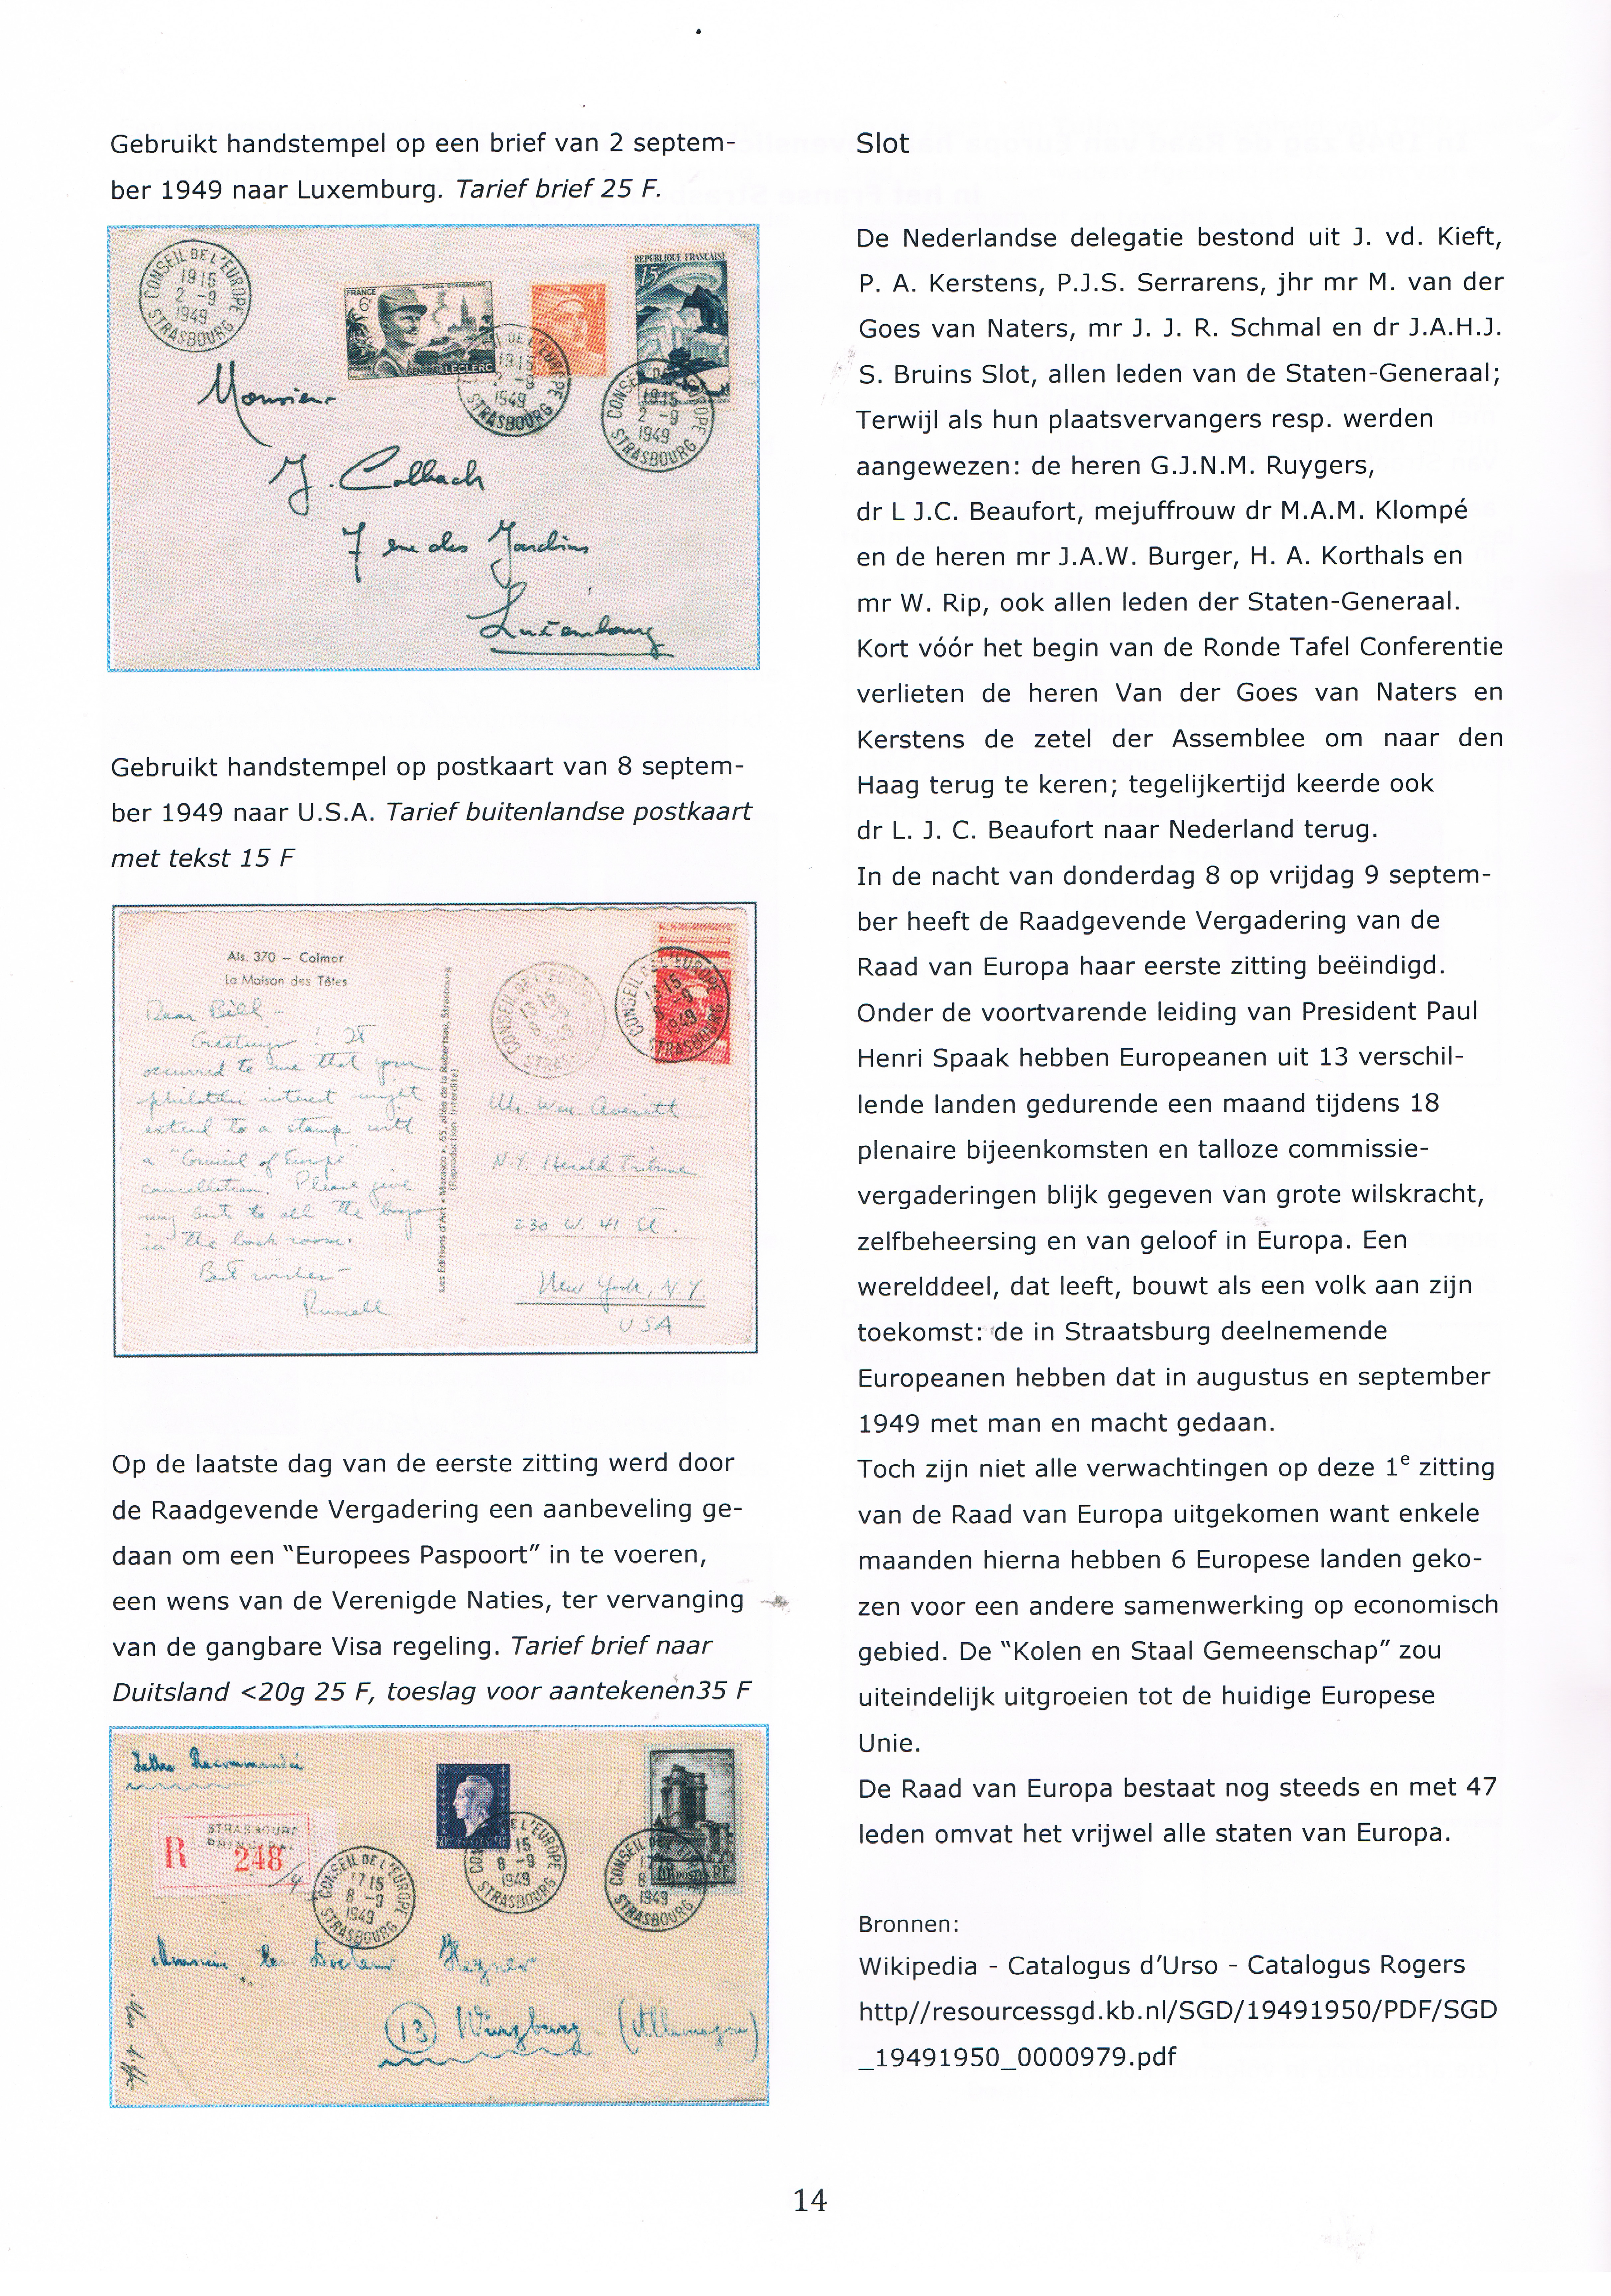 Gebruikt handstempel op een brief van 2 septem-
ber 1949 naar Luxemburg. Tarief brief 25 F.
CONSEIL DE L'EUROPE
1915
2 -9
1949
STRASBOURG
FRANCE
6F
GÉNÉRAL LECLERC
4
REPUBLIQUE FRANÇAISE
15F
CONSEIL DE L'EUROPE
1915
2 -9
1949
STRASBOURG
CONSEIL DE L'EUROPE
1915
2 -9
1949
STRASBOURG
Monsieur
J. Colbach
7 rue des Jardins
Luxembourg
Gebruikt handstempel op postkaart van 8 septem-
ber 1949 naar U.S.A. Tarief buitenlandse postkaart
met tekst 15 F
Als. 370 – Colmar
La Maison des Têtes
Dear Bill –
Greetings! It
occurred to me that your
philatelic interest might
extend to a stamp with
a "Council of Europe"
cancellation. Please give
my best to all the boys
in the back room.
Best wishes –
Russell
Les Editions d'Art « Marasco », 65, allée de la Robertsau, Strasbourg
(Reproduction Interdite)
CONSEIL DE L'EUROPE
1315
8 -9
1949
STRASBOURG
CONSEIL DE L'EUROPE
1315
8 -9
1949
STRASBOURG
Mr. Wm. Averitt
N.Y. Herald Tribune
230 W. 41 St.
New York, N.Y.
USA
Op de laatste dag van de eerste zitting werd door
de Raadgevende Vergadering een aanbeveling ge-
daan om een “Europees Paspoort” in te voeren,
een wens van de Verenigde Naties, ter vervanging
van de gangbare Visa regeling. Tarief brief naar
Duitsland <20g 25 F, toeslag voor aantekenen35 F
Lettre Recommandée
STRASBOURG
PRINCIPAL
R 248
CONSEIL DE L'EUROPE
1715
8 -9
1949
STRASBOURG
15
8 -9
1949
STRASBOURG
CONSEIL DE L'EUROPE
17
8
1949
STRASBOURG
10F POSTES RF
Monsieur le Docteur
(13) Würzburg (Allemagne)
Slot
De Nederlandse delegatie bestond uit J. vd. Kieft,
P. A. Kerstens, P.J.S. Serrarens, jhr mr M. van der
Goes van Naters, mr J. J. R. Schmal en dr J.A.H.J.
S. Bruins Slot, allen leden van de Staten-Generaal;
Terwijl als hun plaatsvervangers resp. werden
aangewezen: de heren G.J.N.M. Ruygers,
dr L J.C. Beaufort, mejuffrouw dr M.A.M. Klompé
en de heren mr J.A.W. Burger, H. A. Korthals en
mr W. Rip, ook allen leden der Staten-Generaal.
Kort vóór het begin van de Ronde Tafel Conferentie
verlieten de heren Van der Goes van Naters en
Kerstens de zetel der Assemblee om naar den
Haag terug te keren; tegelijkertijd keerde ook
dr L. J. C. Beaufort naar Nederland terug.
In de nacht van donderdag 8 op vrijdag 9 septem-
ber heeft de Raadgevende Vergadering van de
Raad van Europa haar eerste zitting beëindigd.
Onder de voortvarende leiding van President Paul
Henri Spaak hebben Europeanen uit 13 verschil-
lende landen gedurende een maand tijdens 18
plenaire bijeenkomsten en talloze commissie-
vergaderingen blijk gegeven van grote wilskracht,
zelfbeheersing en van geloof in Europa. Een
werelddeel, dat leeft, bouwt als een volk aan zijn
toekomst: de in Straatsburg deelnemende
Europeanen hebben dat in augustus en september
1949 met man en macht gedaan.
Toch zijn niet alle verwachtingen op deze 1e zitting
van de Raad van Europa uitgekomen want enkele
maanden hierna hebben 6 Europese landen geko-
zen voor een andere samenwerking op economisch
gebied. De “Kolen en Staal Gemeenschap” zou
uiteindelijk uitgroeien tot de huidige Europese
Unie.
De Raad van Europa bestaat nog steeds en met 47
leden omvat het vrijwel alle staten van Europa.
Bronnen:
Wikipedia - Catalogus d’Urso - Catalogus Rogers
http//resourcessgd.kb.nl/SGD/19491950/PDF/SGD
_19491950_0000979.pdf
14